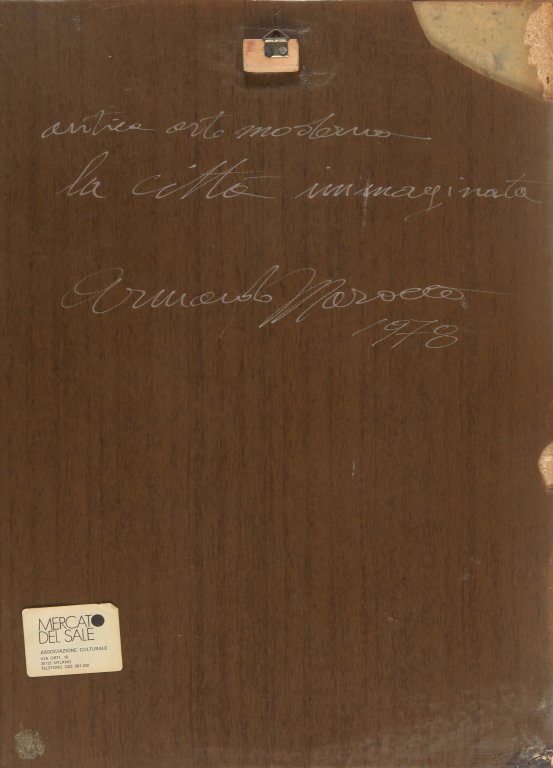 antica arte moderna
la città immaginata
Armando Marocco
1978
MERCATO
DEL SALE
ASSOCIAZIONE CULTURALE
VIA ORTI, 16
20122 MILANO
TELEFONO (02)